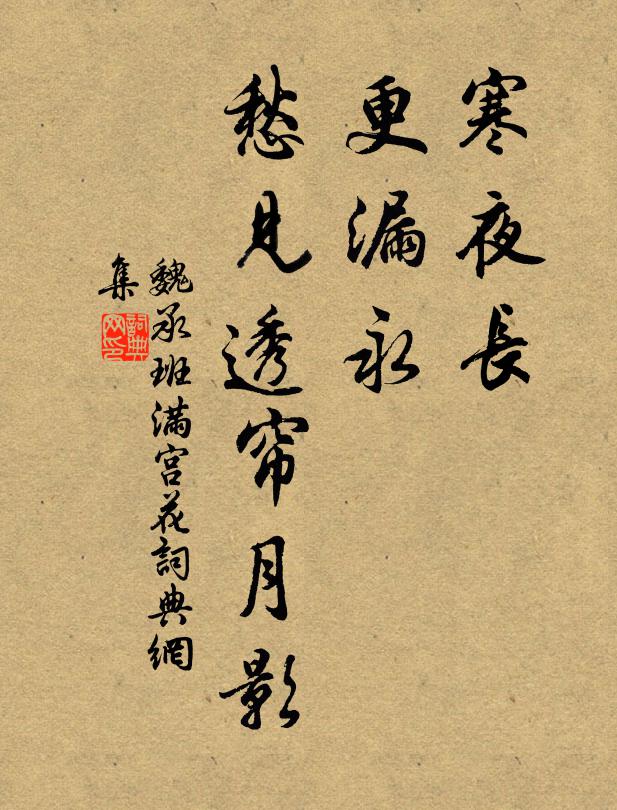 寒夜長
更漏永
愁見透帘月影
魏承班满宫花詞典網
集
詞典
网印